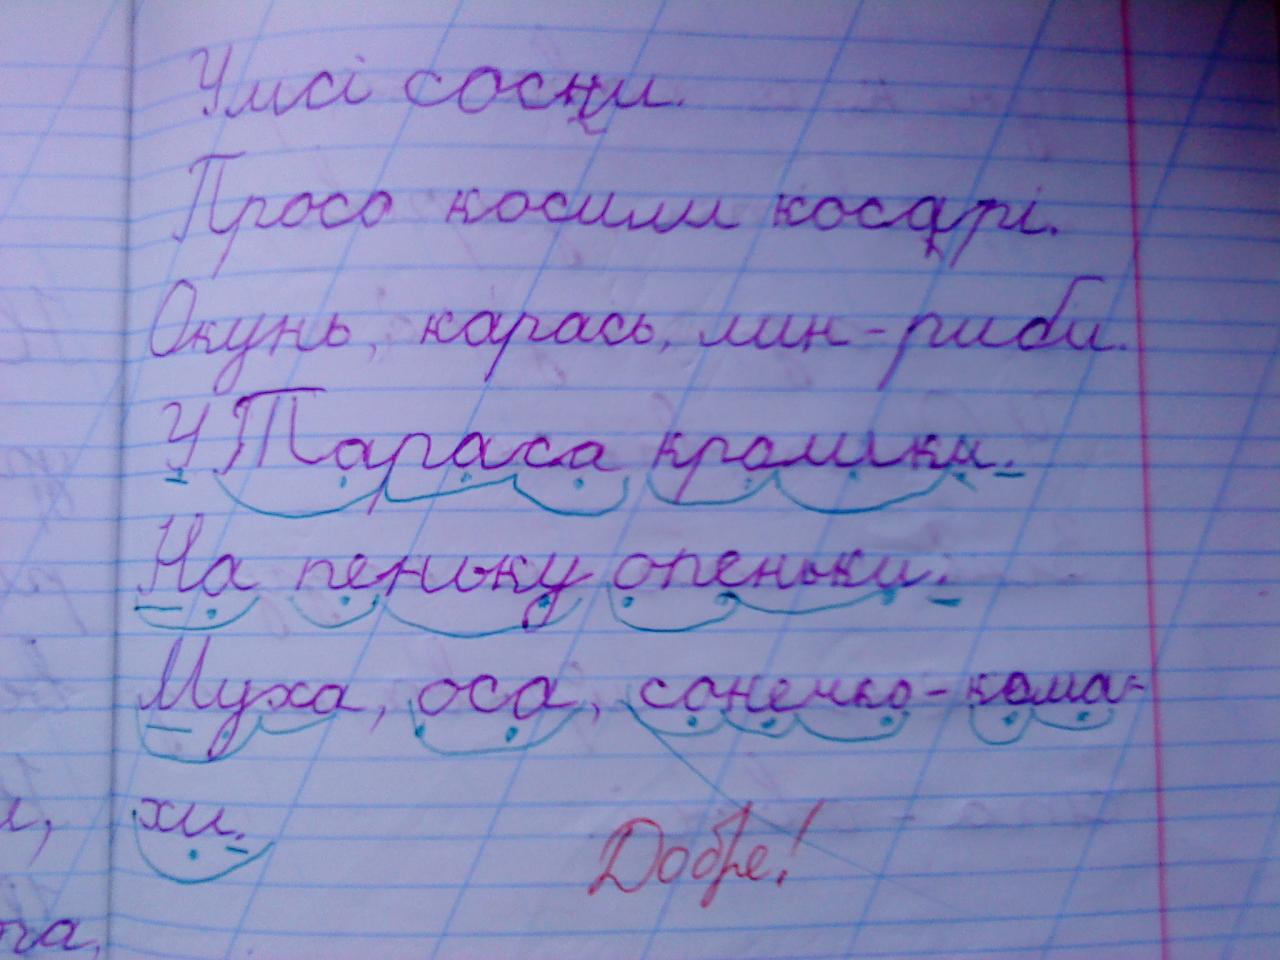 У лісі сосни.
Просо косили косарі.
Окунь, карась, лин-риби.
У Тараса кролики.
На пеньку опеньки.
Муха, оса, сонечко-кома-
хи.
Добре!